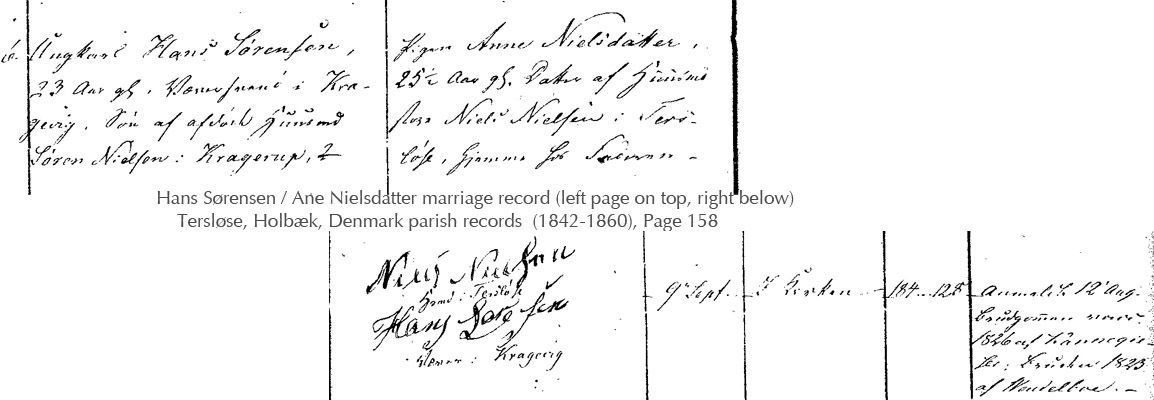 6.
Ungkarl Hans Sørensen,
23 Aar gl. Væversvend i Kra-
gevig. Søn af afdøde Huusmd
Søren Nielsen i Kragerup, 2
Pigen Anne Nielsdatter,
25½ Aar gl. Datter af Huusmd
Niels Nielsen i Ters-
løse, hjemme hos
Hans Sørensen / Ane Nielsdatter marriage record (left page on top, right below)
Tersløse, Holbæk, Denmark parish records (1842-1860), Page 158
Niels Nielsen
Tersløse
Hans Sørensen
Væver i Kragevig
9 Sept.
I Kirken
184 128
Anmeldt 12 Aug.
Brudgommen vacc.
1826 af
Bruden 1823
af